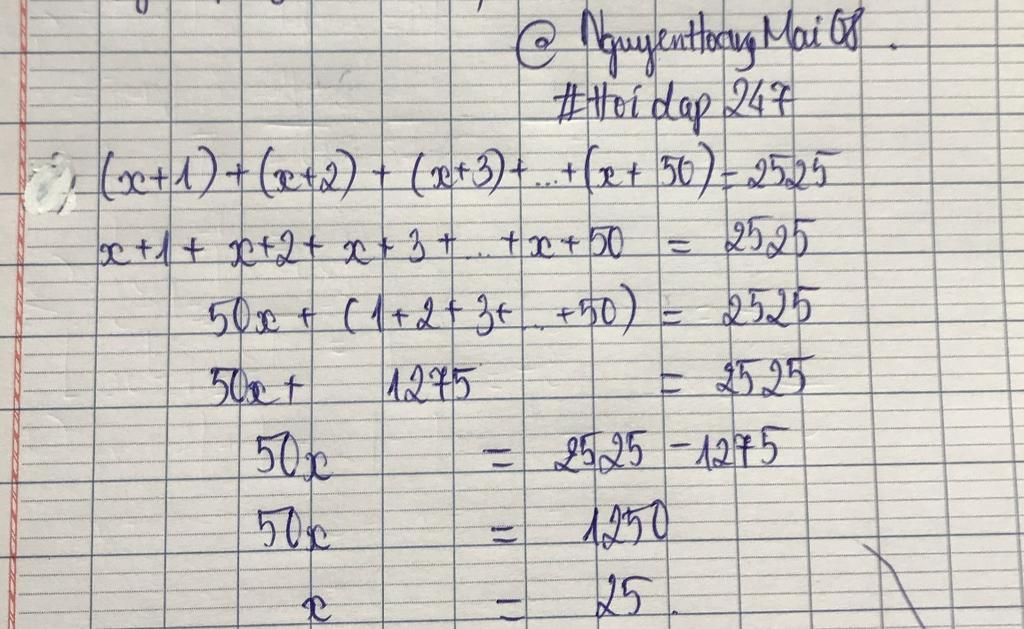 @ NguyenHoangMai08.
#Hoidap 247
(x+1)+(x+2)+(x+3)+...+(x+50)=2525
x+1+x+2+x+3+...+x+50 = 2525
50x+(1+2+3+...+50) = 2525
50x+ 1275 = 2525
50x = 2525-1275
50x = 1250
x = 25.